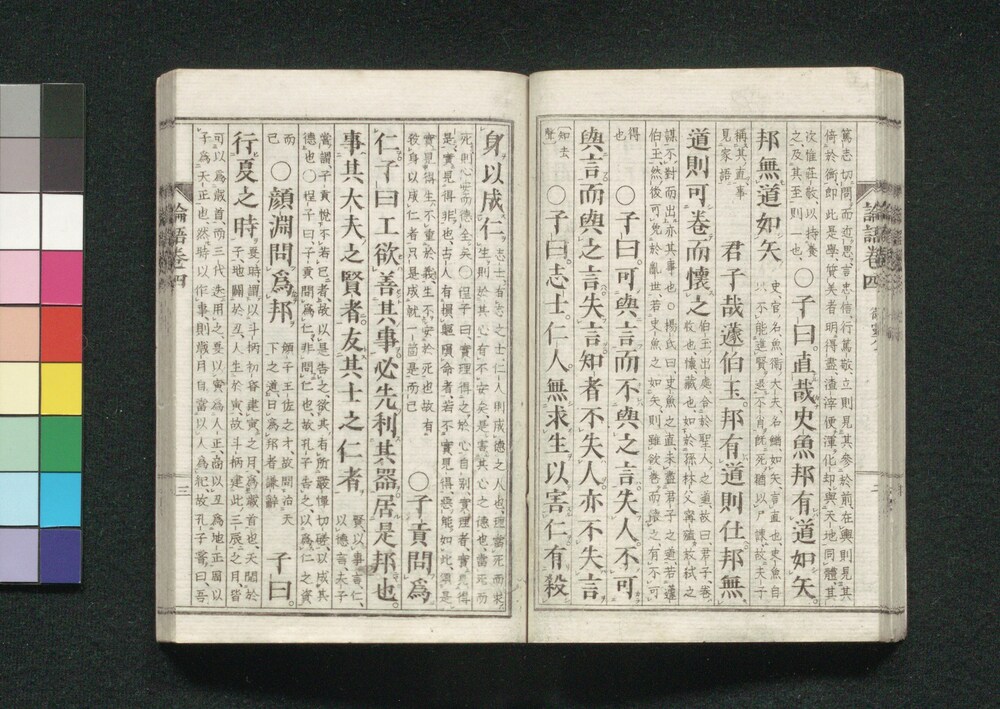 論語卷四
篤志切問而近思言忠信行篤敬立則見其參於前在輿則見其
倚於衡即此是學質美者明得盡渣滓便渾化却與天地同體其
次惟莊敬以持養
之及其至則一也
○子曰直哉史魚邦有道如矢
邦無道如矢
史官名魚衛大夫名鰌如矢言直也史魚自
以不能進賢退不肖既死猶以尸諫故夫子
稱其直事
見家語
君子哉蘧伯玉邦有道則仕邦無
道則可卷而懷之
伯玉出處合於聖人之道故曰君子卷
收也懷藏也如於孫林父甯殖放弑之
謀不對而出亦其事也○楊氏曰史魚之直未盡君子之道若蘧
伯玉然後可免於亂世若史魚之如矢則雖欲卷而懷之有不可
得
也
○子曰可與言而不與之言失人不可
與言而與之言失言知者不失人亦不失言
知去
聲
○子曰志士仁人無求生以害仁有殺
身以成仁
志士有志之士仁人則成德之人也理當死而求
生則於其心有不安矣是害其心之德也當死而
死則心安而德全矣○程子曰實理得之於心自別實理者實見得
是實見得非也古人有捐軀隕命者若不實見得惡能如此須是
實見得生不重於義生不安於死也故有
殺身以成仁者只是成就一箇是而已
○子貢問爲
仁子曰工欲善其事必先利其器居是邦也
事其大夫之賢者友其士之仁者
賢以事言仁
以德言夫子
嘗謂子貢悅不若己者故以是告之欲其有所嚴憚切磋以成其
德也○程子曰子貢問爲仁非問仁也故孔子告之以爲仁之資
而
已
○顏淵問爲邦
顏子王佐之才故問治天
下之道曰爲邦者謙辭
子曰
行夏之時
夏時謂以斗柄初昏建寅之月爲歲首也天開於
子地闢於丑人生於寅故斗柄建此三辰之月皆
可以爲歲首而三代迭用之夏以寅爲人正商以丑爲地正周以
子爲天正也然時以作事則歲月自當以人爲紀故孔子嘗曰吾
論語卷四
三